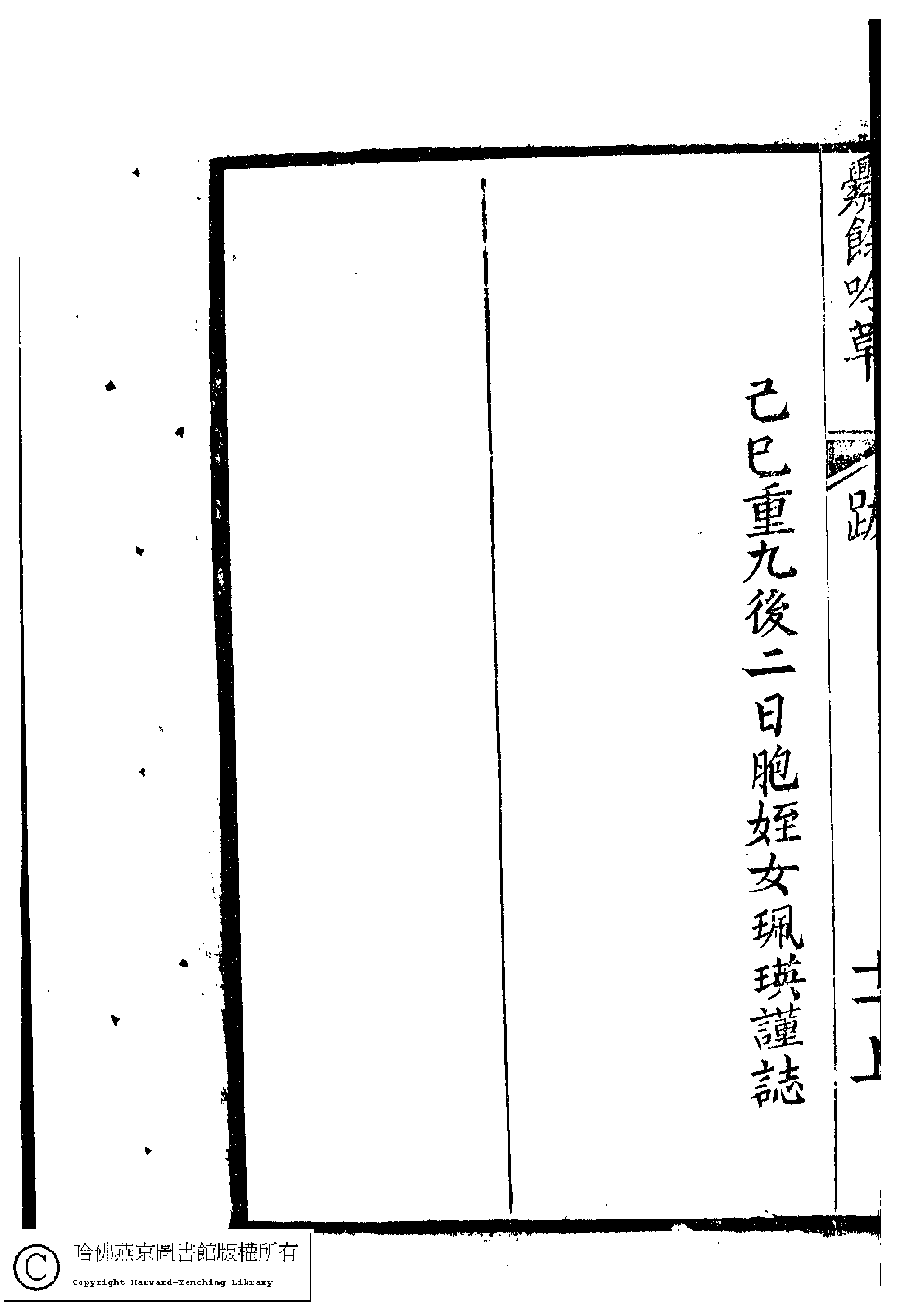 爨餘吟草
跋
己巳重九後二日胞姪女珮瑛謹誌
哈佛燕京圖書館版權所有
Copyright Harvard-Yenching Library